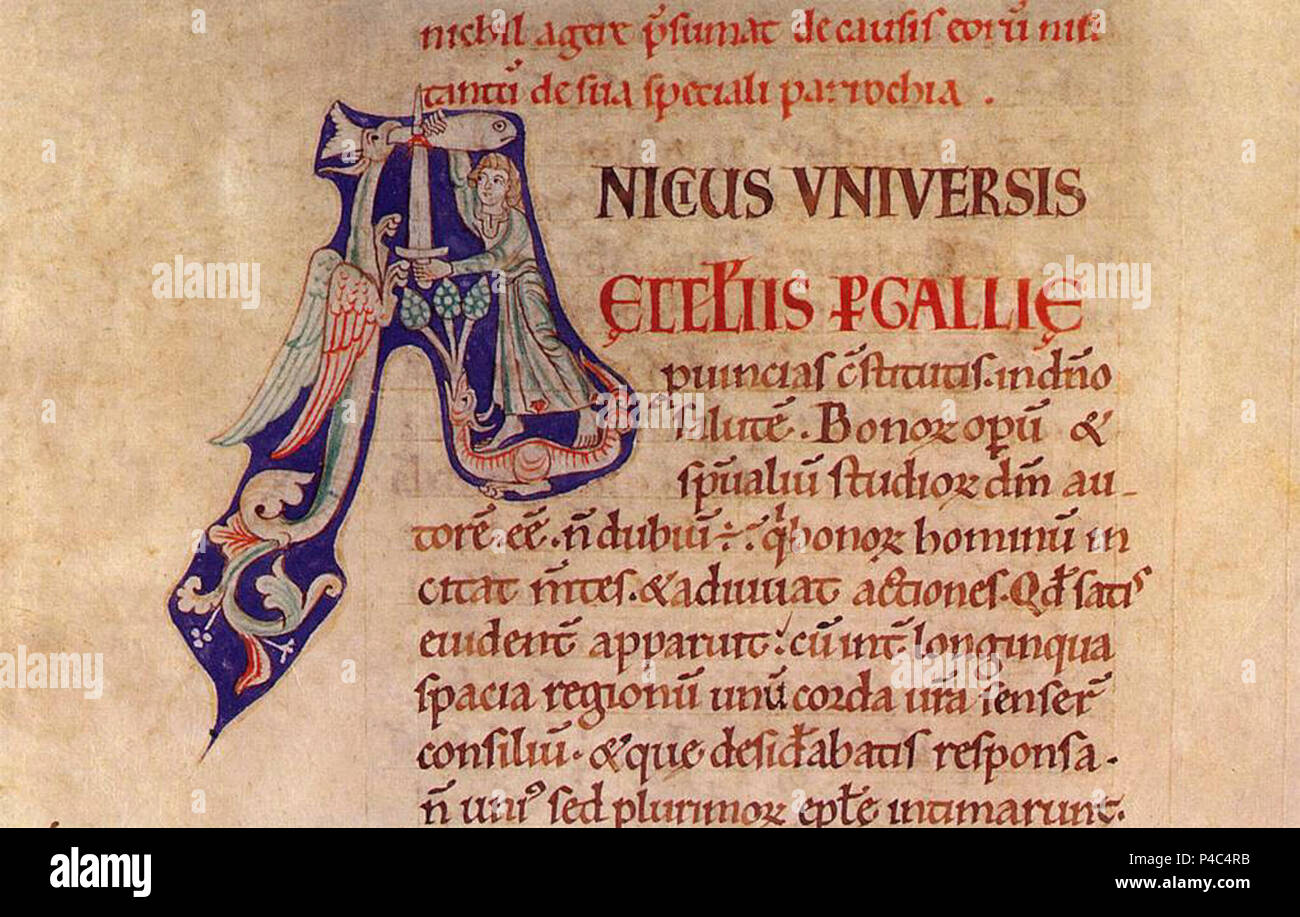 nichil agere p̄sumat de causis eorū nisi
tantū de sua speciali parrochia .
NICIUS VNIVERSIS
ĘCCL̄IIS P̱ GALLIĘ
puincias c̄stitutis. in dn̄o
salutē. Bonoꝝ opū &
sp̄ualiū studioꝝ dm̄ au-
torē. eē. n̄ dubiū ÷. q' bonoꝝ hominū in
citat m̄tes. & adiuuat actiones. Qd̄ satis
euident̄ apparuit: cū int̄ longinqua
spacia regionū unū corda ur̄a senser̄
consiliū. & que desid̄abatis responsa.
n̄ uni' sed plurimoꝝ epl̄e intimarunt.
alamy
alamy stock photo
Image ID: P4C4RB
www.alamy.com